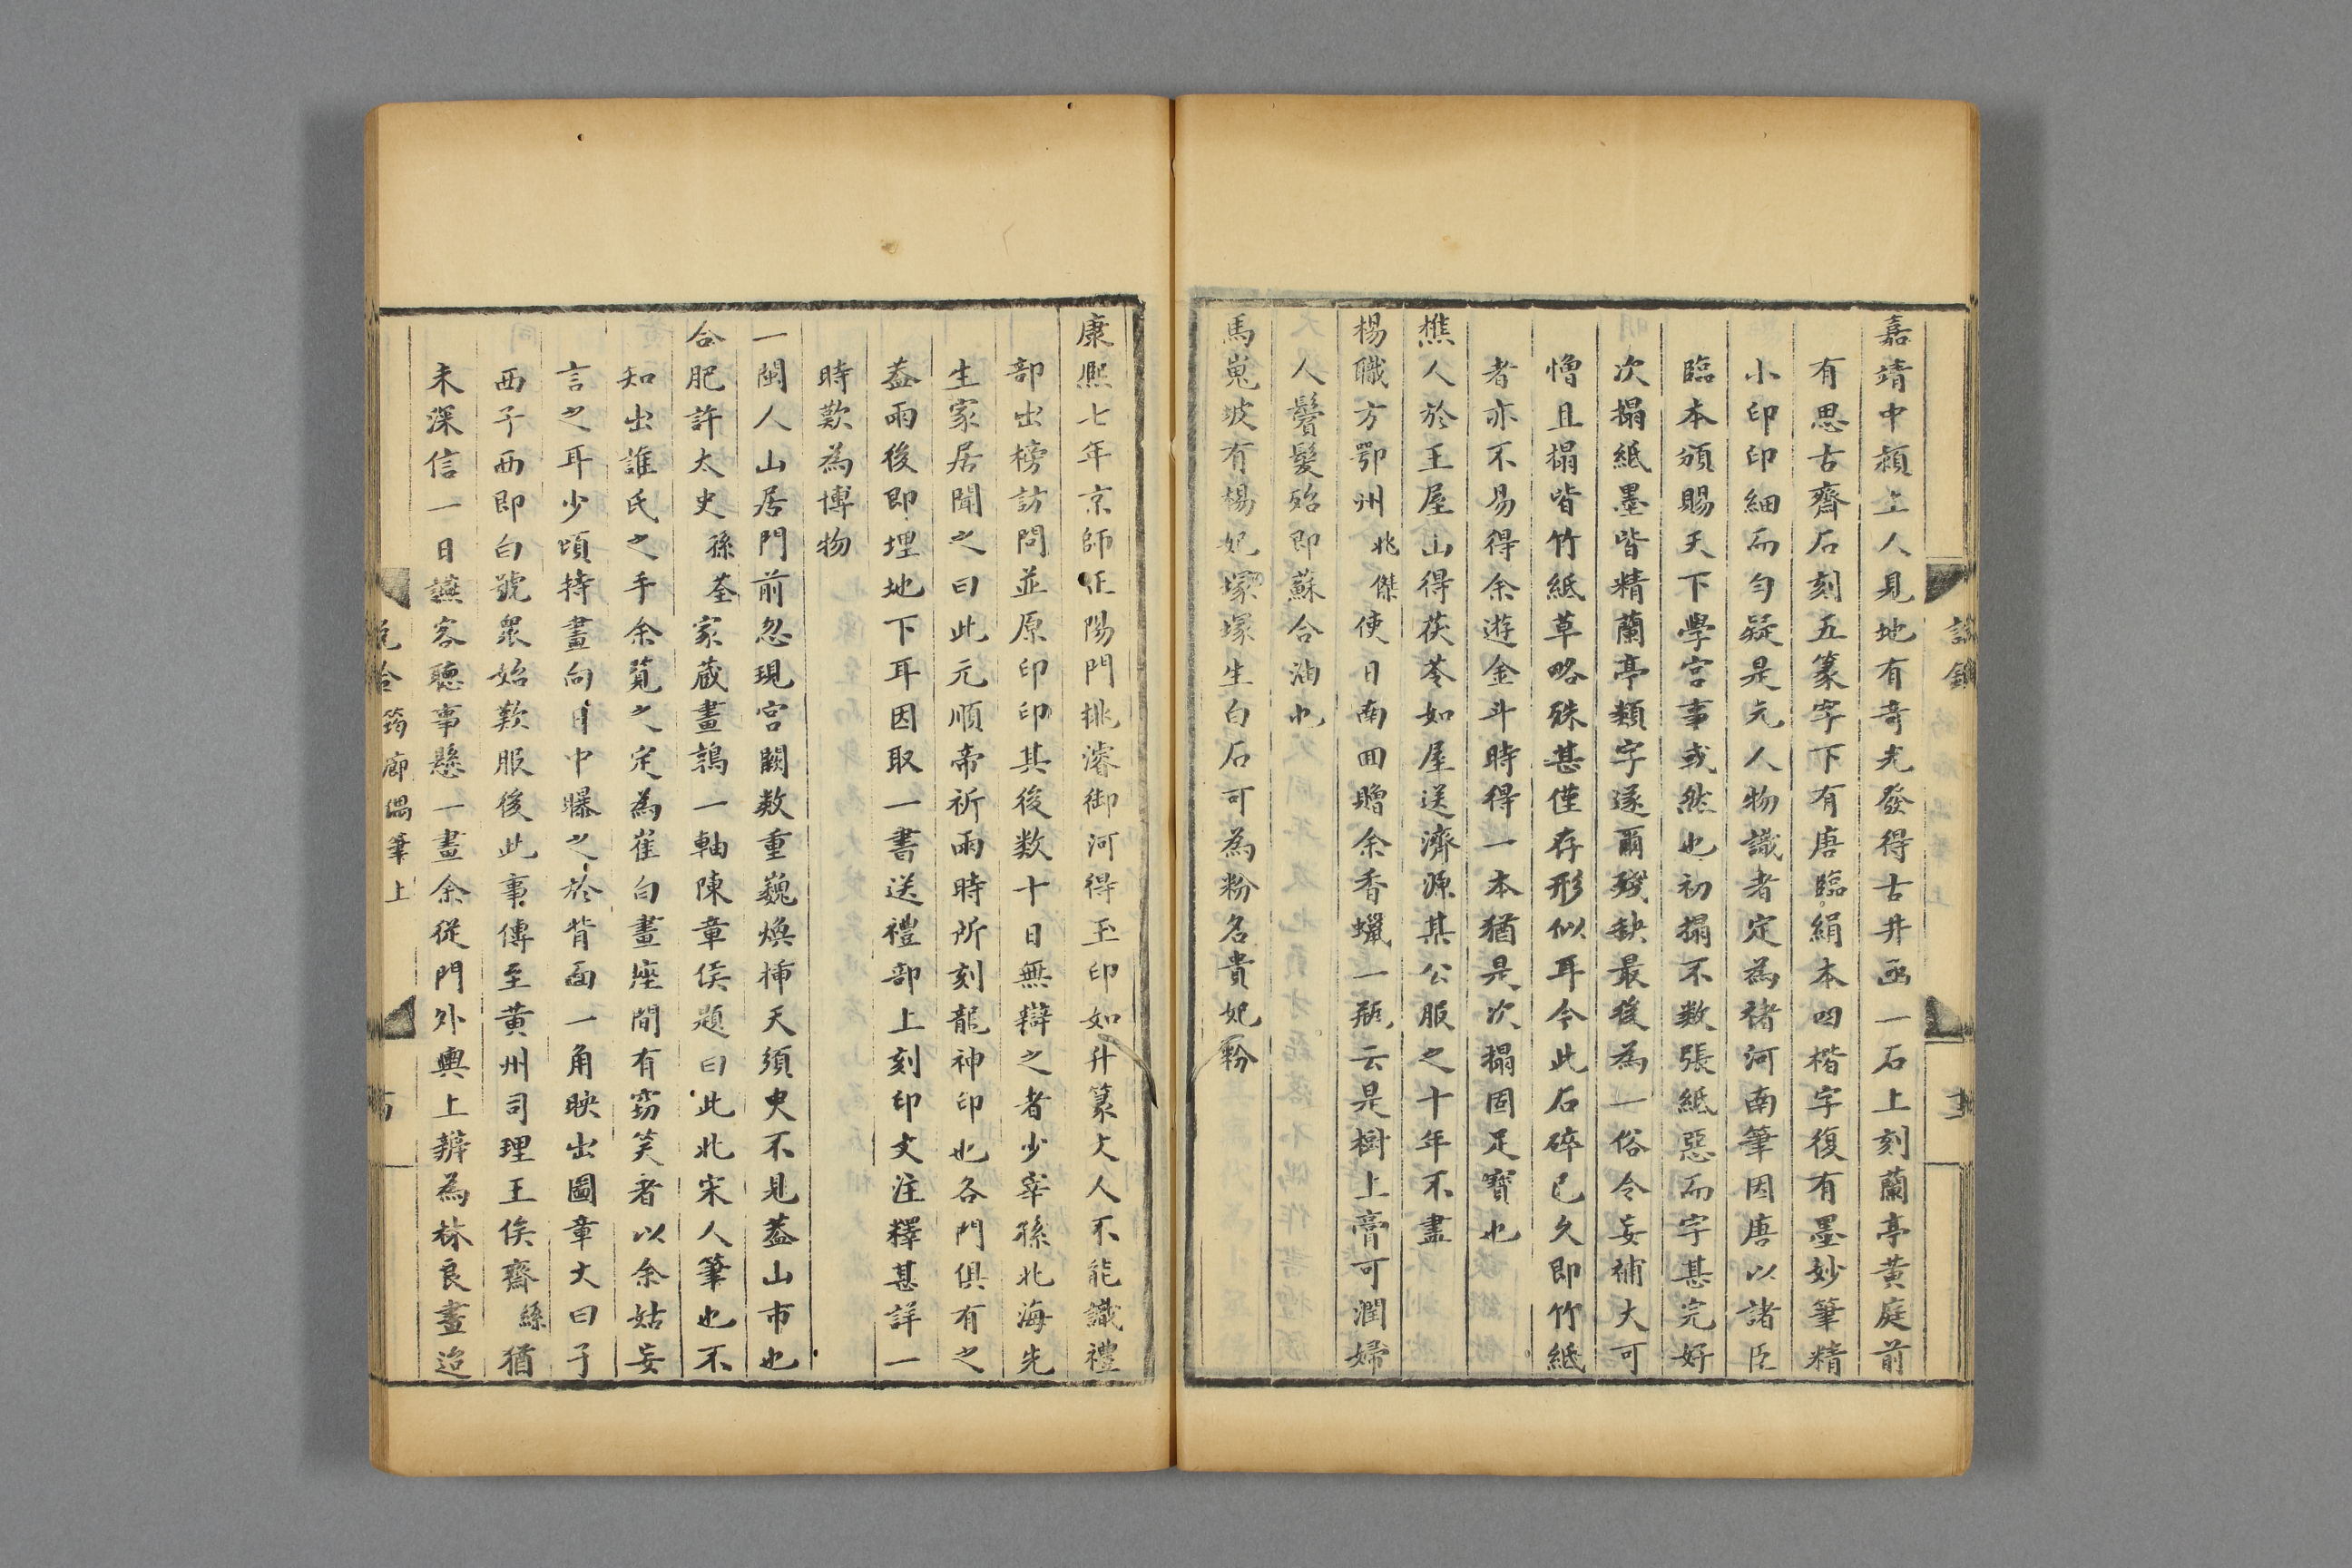 嘉靖中潁上人見地有奇光發得古井函一石上刻蘭亭黃庭前
有思古齋石刻五篆字下有唐臨絹本四楷字復有墨妙筆精
小印印細而勻疑是元人物識者定為褚河南筆因唐以諸臣
臨本頒賜天下學宮事或然也初搨不数張紙惡而字甚完好
次搨紙墨皆精蘭亭類字遂爾殘缺最後為一俗令妄補大可
憎且搨皆竹紙草略殊甚僅存形似耳今此石碎已久即竹紙
者亦不易得余遊金斗時得一本猶是次搨固足寶也
樵人於王屋山得茯苓如屋送濟源某公服之十年不盡
楊職方鄂州兆傑使日南回贈余香蠟一瓶云是樹上膏可潤婦
人鬢髮殆即蘇合油也
馬嵬坡有楊妃塚塚生白石可為粉名貴妃粉
康熙七年京師正陽門挑濬御河得玉印如升篆文人不能識禮
部出榜訪問並原印印其後数十日無辯之者少宰孫北海先
生家居聞之曰此元順帝祈雨時所刻龍神印也各門俱有之
葢雨後即埋地下耳因取一書送禮部上刻印文注釋甚詳一
時歎為博物
一閩人山居門前忽現宮闕数重巍煥插天須臾不見葢山市也
合肥許太史孫荃家蔵畫鶉一軸陳章侯題曰此北宋人筆也不
知出誰氏之手余覧之定為崔白畫座間有窃笑者以余姑妄
言之耳少頃持畫向日中曝之於背面一角映出圖章文曰子
西子西即白號衆始歎服後此事傳至黃州司理王俟齋絲猶
未深信一日讌客聽事懸一畫余従門外輿上辨為林良畫迨
說鈴
筠廊偶筆上